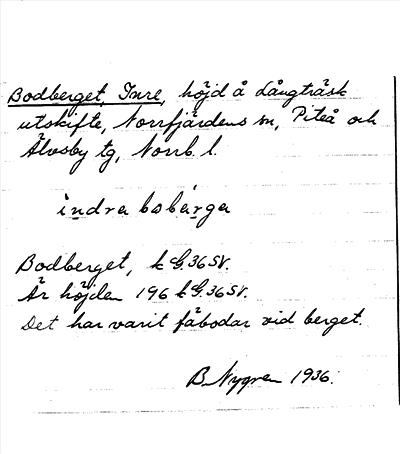 Bodberget, Inre, höjd å Långträsk
utskifte, Norrfjärdens sn, Piteå och
Älvsby tg, Norrb. l.
indra bobärga
Bodberget, k G.36 SV.
Är höjden 196 k G.36 SV.
Det har varit fäbodar vid berget.
B. Nygren 1936.